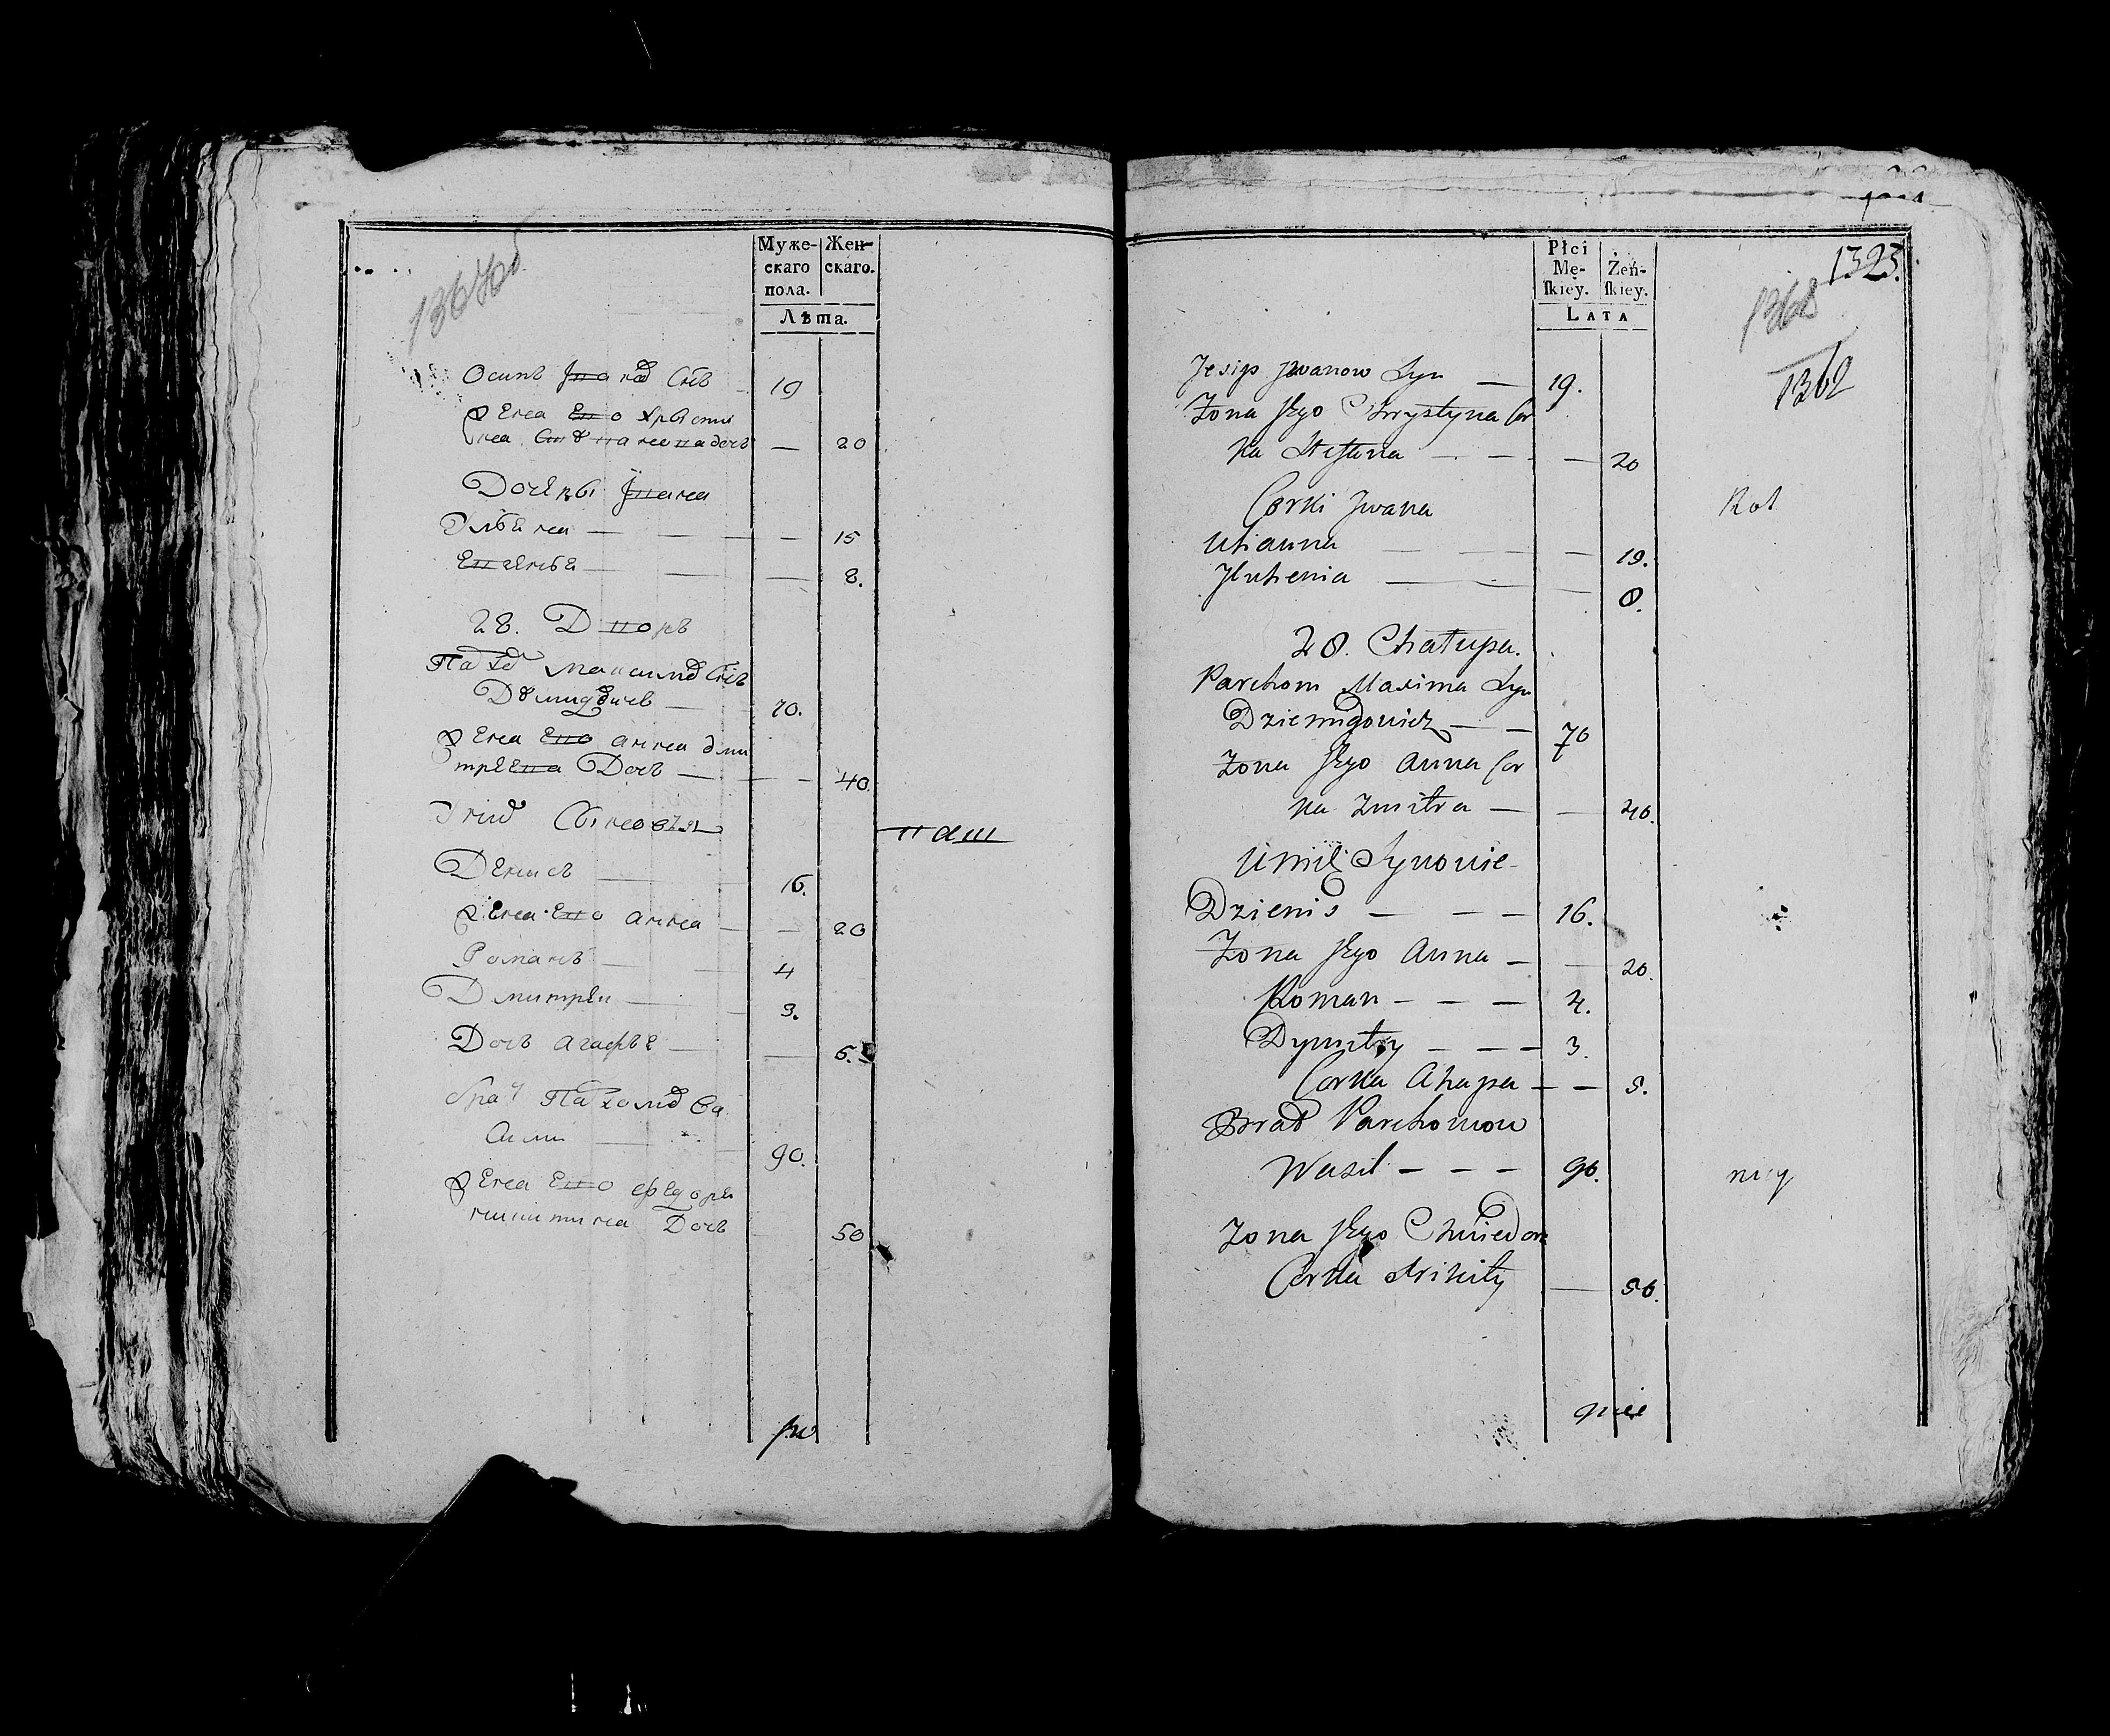 1367 об
Муже-
скаго
пола.
Жен-
скаго.
Лѣта.
Осипъ Іванов Снъ 19
Жена Ево Христи
на Степанова дочь — 20
Дочеры Івана
Ульяна — — — 15
Евгенья — — — 8.
28. Дворъ
Пархом Максимов Снъ
Демидович — 70.
Жена Ево Анна Дми
треева Дочь — — 40.
Сыновья
Денисъ — 16.
Жена Ево Анна — — 20
Романъ — — 4
Дмитреи — 3.
Дочь Агафья — — 5.
Брат Пархомов Ва
силии — 90.
Жена Ево Федора
Никитина Дочь 50
Płci
Mę-
ſkiey.
Żeń-
ſkiey.
LATA
1323.
1368
1362
Jesip Jwanow Syn — 19.
Zona Jego Chrystyna Cor
ka Stefana — — — 20
Corki Jwana
Ulianna — — — 19.
Jluhenia — — — 8.
28. Chałupa.
Parchom Maxima Syn
Dziemidowicz — — 70
Zona Jego Anna Cor
ka Zmitra — — 40.
Synowie
Dzienis — — — 16.
Zona Jego Anna — — 20.
Roman — — — 4.
Dymitry — — — 3.
Corka Ahapa — — 5.
Brat Parchomow
Wasil — — — 90.
Zona Jego Chwiedora
Corka Nikity — 50.